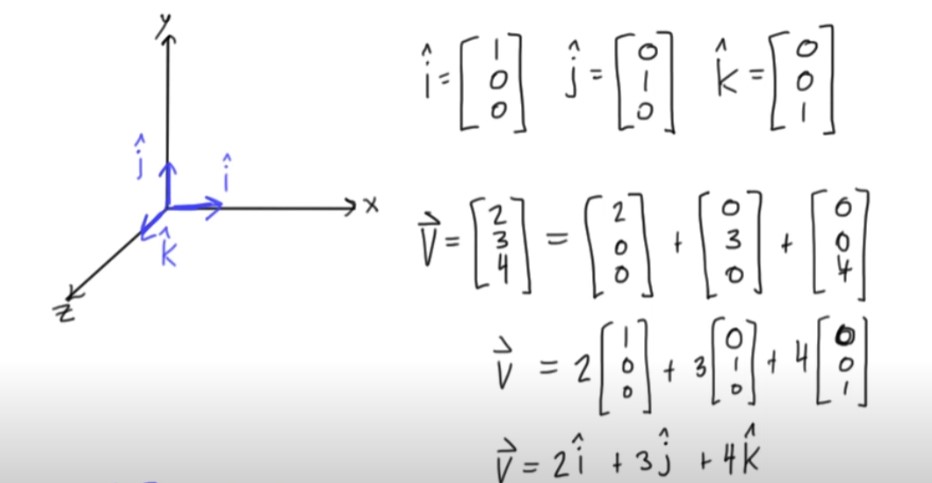 y
ĵ
î
x
k̂
z
î = [1 0 0] ĵ = [0 1 0] k̂ = [0 0 1]
V⃗ = [2 3 4] = [2 0 0] + [0 3 0] + [0 0 4]
V⃗ = 2 [1 0 0] + 3 [0 1 0] + 4 [0 0 1]
V⃗ = 2î + 3ĵ + 4k̂